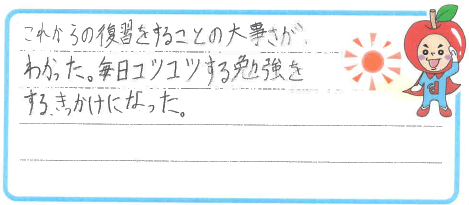 これからの復習をすることの大事さが、
わかった。毎日コツコツする勉強を
する、きっかけになった。